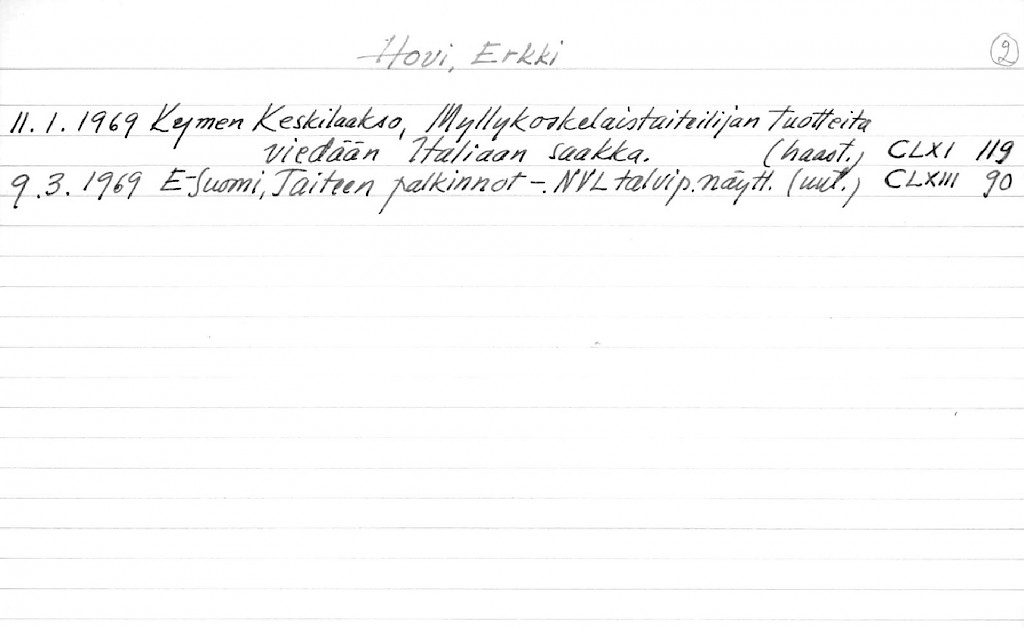 Hovi, Erkki 2
11.1.1969 Kymen Keskilaakso, Myllykoskelaistaiteilijan tuotteita
viedään Italiaan saakka. (haast.) CLXI 119
9.3.1969 E-Suomi, Taiteen palkinnot -. NVL talvip.näytt. (uut.) CLXIII 90